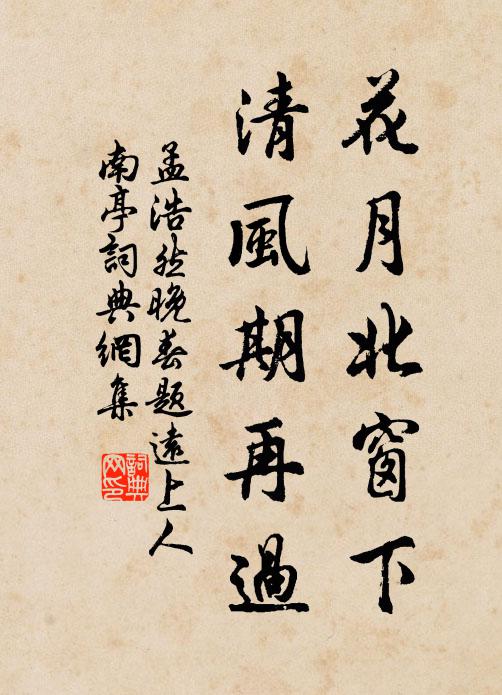 花月北窗下
清風期再過
孟浩然晚春題遠上人
南亭詞典網集
詞典
网印